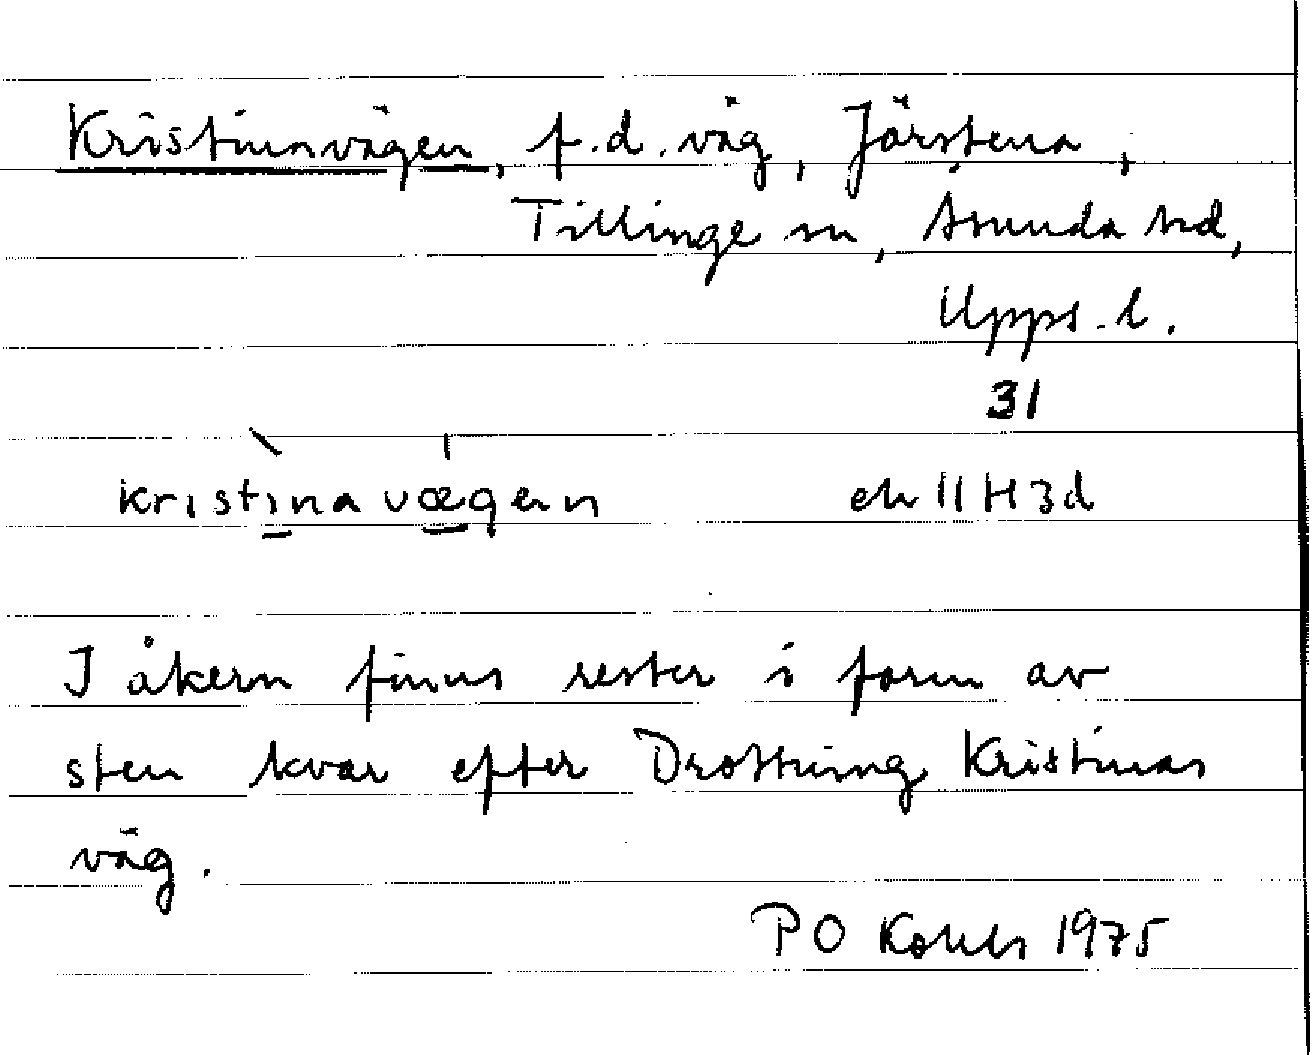 Kristinavägen, f.d. väg, Järstena,
Tillinge sn, Åsunda hd,
Upps. l.
31
kristinavægen ek 11 H 3d
I åkern finns rester i form av
sten kvar efter Drottning Kristinas
väg.
P O 1975